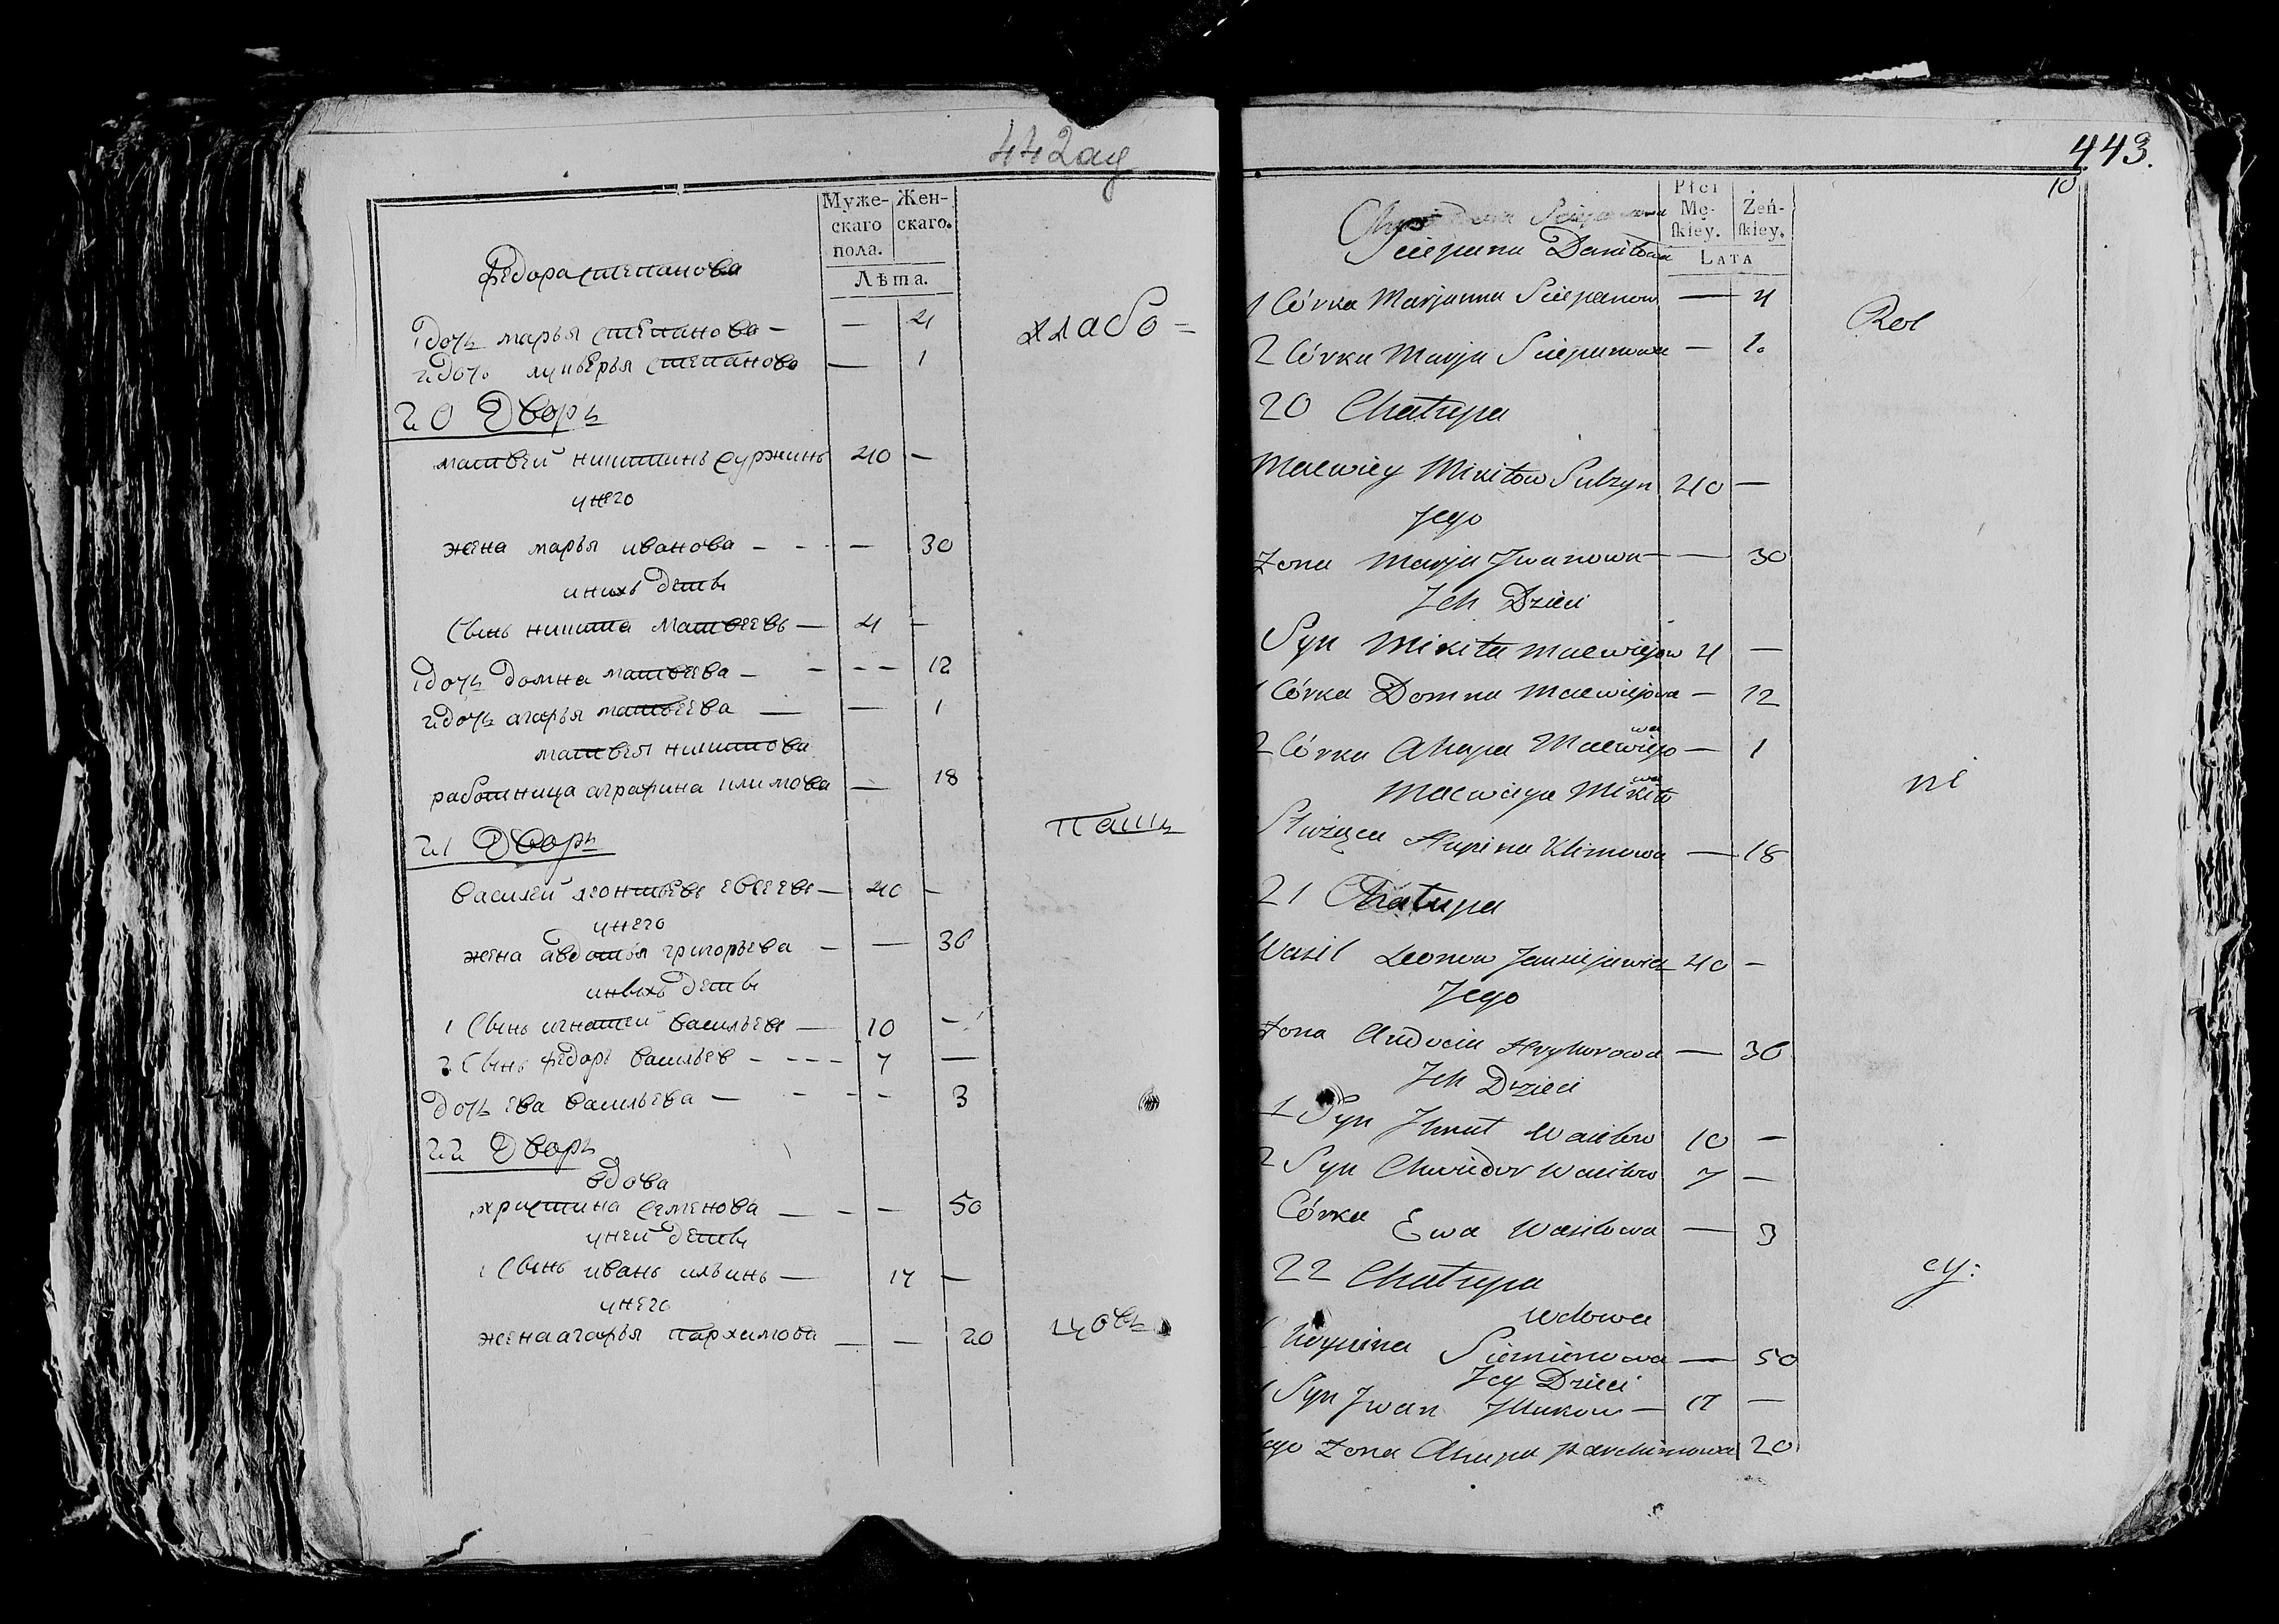 442
Муже-
скаго
пола.
Жен-
скаго.
Лѣта.
Федора степанова
1 дочь марья степанова — — 4
2 дочь степанова — 1
хлабо=
20 Дворъ
матвей никитинъ суржинъ 40 —
унего
жена марья иванова — — 30
унихъ дети
Сынь никита матвеевъ — 4 —
1 дочь домна матвеева — — 12
2 дочь агарья матвеева — — 1
матвея никитова
работница аграфина климова — 18
21 Дворъ
пашъ
василей леонтьевъ евсеевъ — 40 —
унего
жена авдотья григорьева — — 36
унихъ дети
1 Сынь игнатей васильевъ — 10 —
2 Сынь федоръ васильев — 7 —
дочь ева васильева — — 3
22 Дворъ
вдова
христина семенова — — 50
уней дети
1 Сынь иванъ ильинъ — 17 —
унего
жена агарья пархимова — — 20
цовъ
443.
10
Płci
Mę-
skiey.
Żeń-
skiey.
LATA
Sciepana Daniłowa
1 Córka Marjanna Sciepanow — 4
2 Córka Marja Sciepanowa — 1.
Rol
20 Chatupa
Maewiey Mikitow Sulzyn 40 —
Jego
Zona Marja Jwanowa — 30
Jch Dzieci
Syn Mikita Maewiejow 4 —
1 Córka Domna Maewiejowa — 12
2 Córka Ahapa Maewiejowa — 1
Maewieya Mikitowa
ni
Służąca Hapina Klimowa — 18
21 Chatupa
Wasil Leonow Jausiejewicz 40 —
Jego
Zona Audocia Hryhorowa — 36
Jch Dzieci
1 Syn Jhnat Wasilow 10 —
2 Syn Chwiedor Wasilow 7 —
Córka Ewa Wasilowa — 3
22 Chatupa
cy:
Wdowa
Siemionowa — 50
Jey Dzieci
1 Syn Jwan Jllukow — 17 —
Jego Zona Ahapa Parchimowa 20